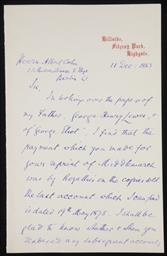 Hillside,
Fitzroy Park,
Highgate.
11 Dec: 1883
Messrs Albert Cohn
Berlin W
Sir,
In looking over the papers of
my Father, George Henry Lewes, &
of "George Eliot", I find that the
payment which you made for
your reprint of Middlemarch
was by Royalties on the copies sold
the last account which I can find
is dated 19th May 1875. I shall be
glad to know whether & when you
rendered any subsequent account,